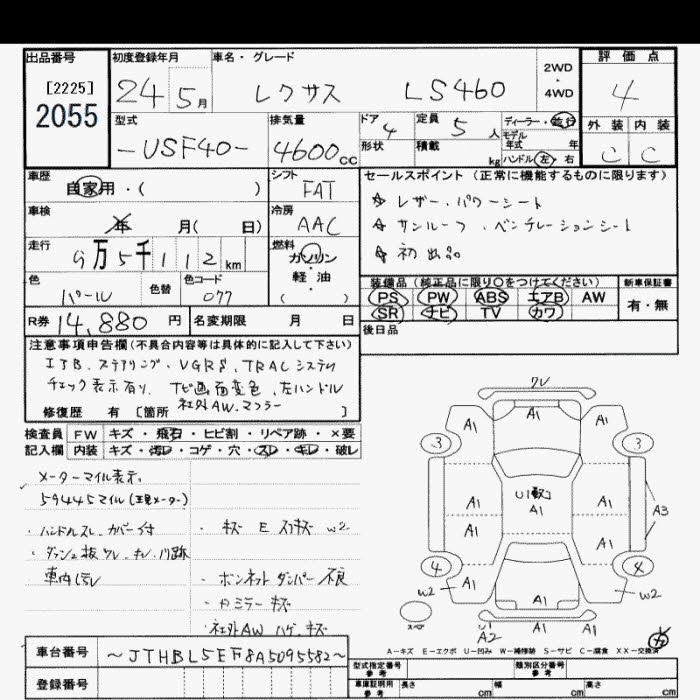 出品番号
[2225]
2055
初度登録年月
24 5月
車名・グレード
レクサス LS460
2WD
・
4WD
評価点
4
外装 内装
C C
型式
-USF40-
排気量
4600cc
ドア 4
形状
定員 5 人
積載 kg
ディーラー・並行
モデル
年式 年
ハンドル 左 右
車歴
自家用・( )
シフト
FAT
車検
年 月( 日)
冷房
AAC
走行
9万5千112km
燃料
ガソリン
・
軽油
( )
色
パール
色替
色コード
077
R券 14,880 円
名変期限 月 日
セールスポイント(正常に機能するものに限ります)
☆ レザー、パワーシート
☆ サンルーフ、ベンチレーションシート
☆ 初出品
装備品(純正品に限り〇をつけてください)
PS PW ABS エアB AW
SR ナビ TV カワ
新車保証書
有・無
後日品
注意事項申告欄(不具合内容等は具体的に記入して下さい)
ステアリング、VGRS、TRACシステム
チェック表示有り、ナビ画面変色、左ハンドル
社外AW、マフラー
修復歴 有 [箇所 ]
検査員 FW キズ・飛石・ヒビ割・リペア跡・×要
記入欄 内装 キズ・汚レ・コゲ・穴・スレ・キレ・破レ
メーターマイル表示
59445マイル(現メーター)
・ハンドルスレ、カバー付
・ダッシュ板ワレ、キレ、
車内汚レ
・キズ E スリキズ W2
・ボンネットダンパー不良
・ミラーキズ
・社外AW ハゲ、キズ
ワレ
A1 A1 A1
3 3
U1
A1
A1 A1
A1 A1
A3
4 4
A1 A1 A1
W2 W2
A1 A1
A2
A-キズ E-エクボ U-凹み W-補修跡 S-サビ C-腐食 XX-交換済
車台番号
~JTHBL5EF8A5095582~
登録番号
型式指定番号
参考
類別区分番号
参考
車庫証明用
参考
長さ cm 幅 cm 高さ cm